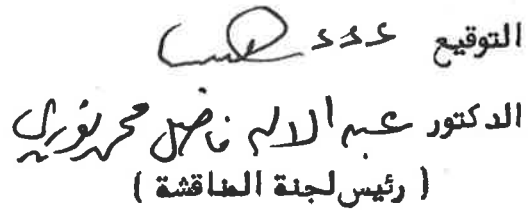 التوقيع
الدكتور عبد الاله فاضل محمد نوري
( رئيس لجنة المناقشة )